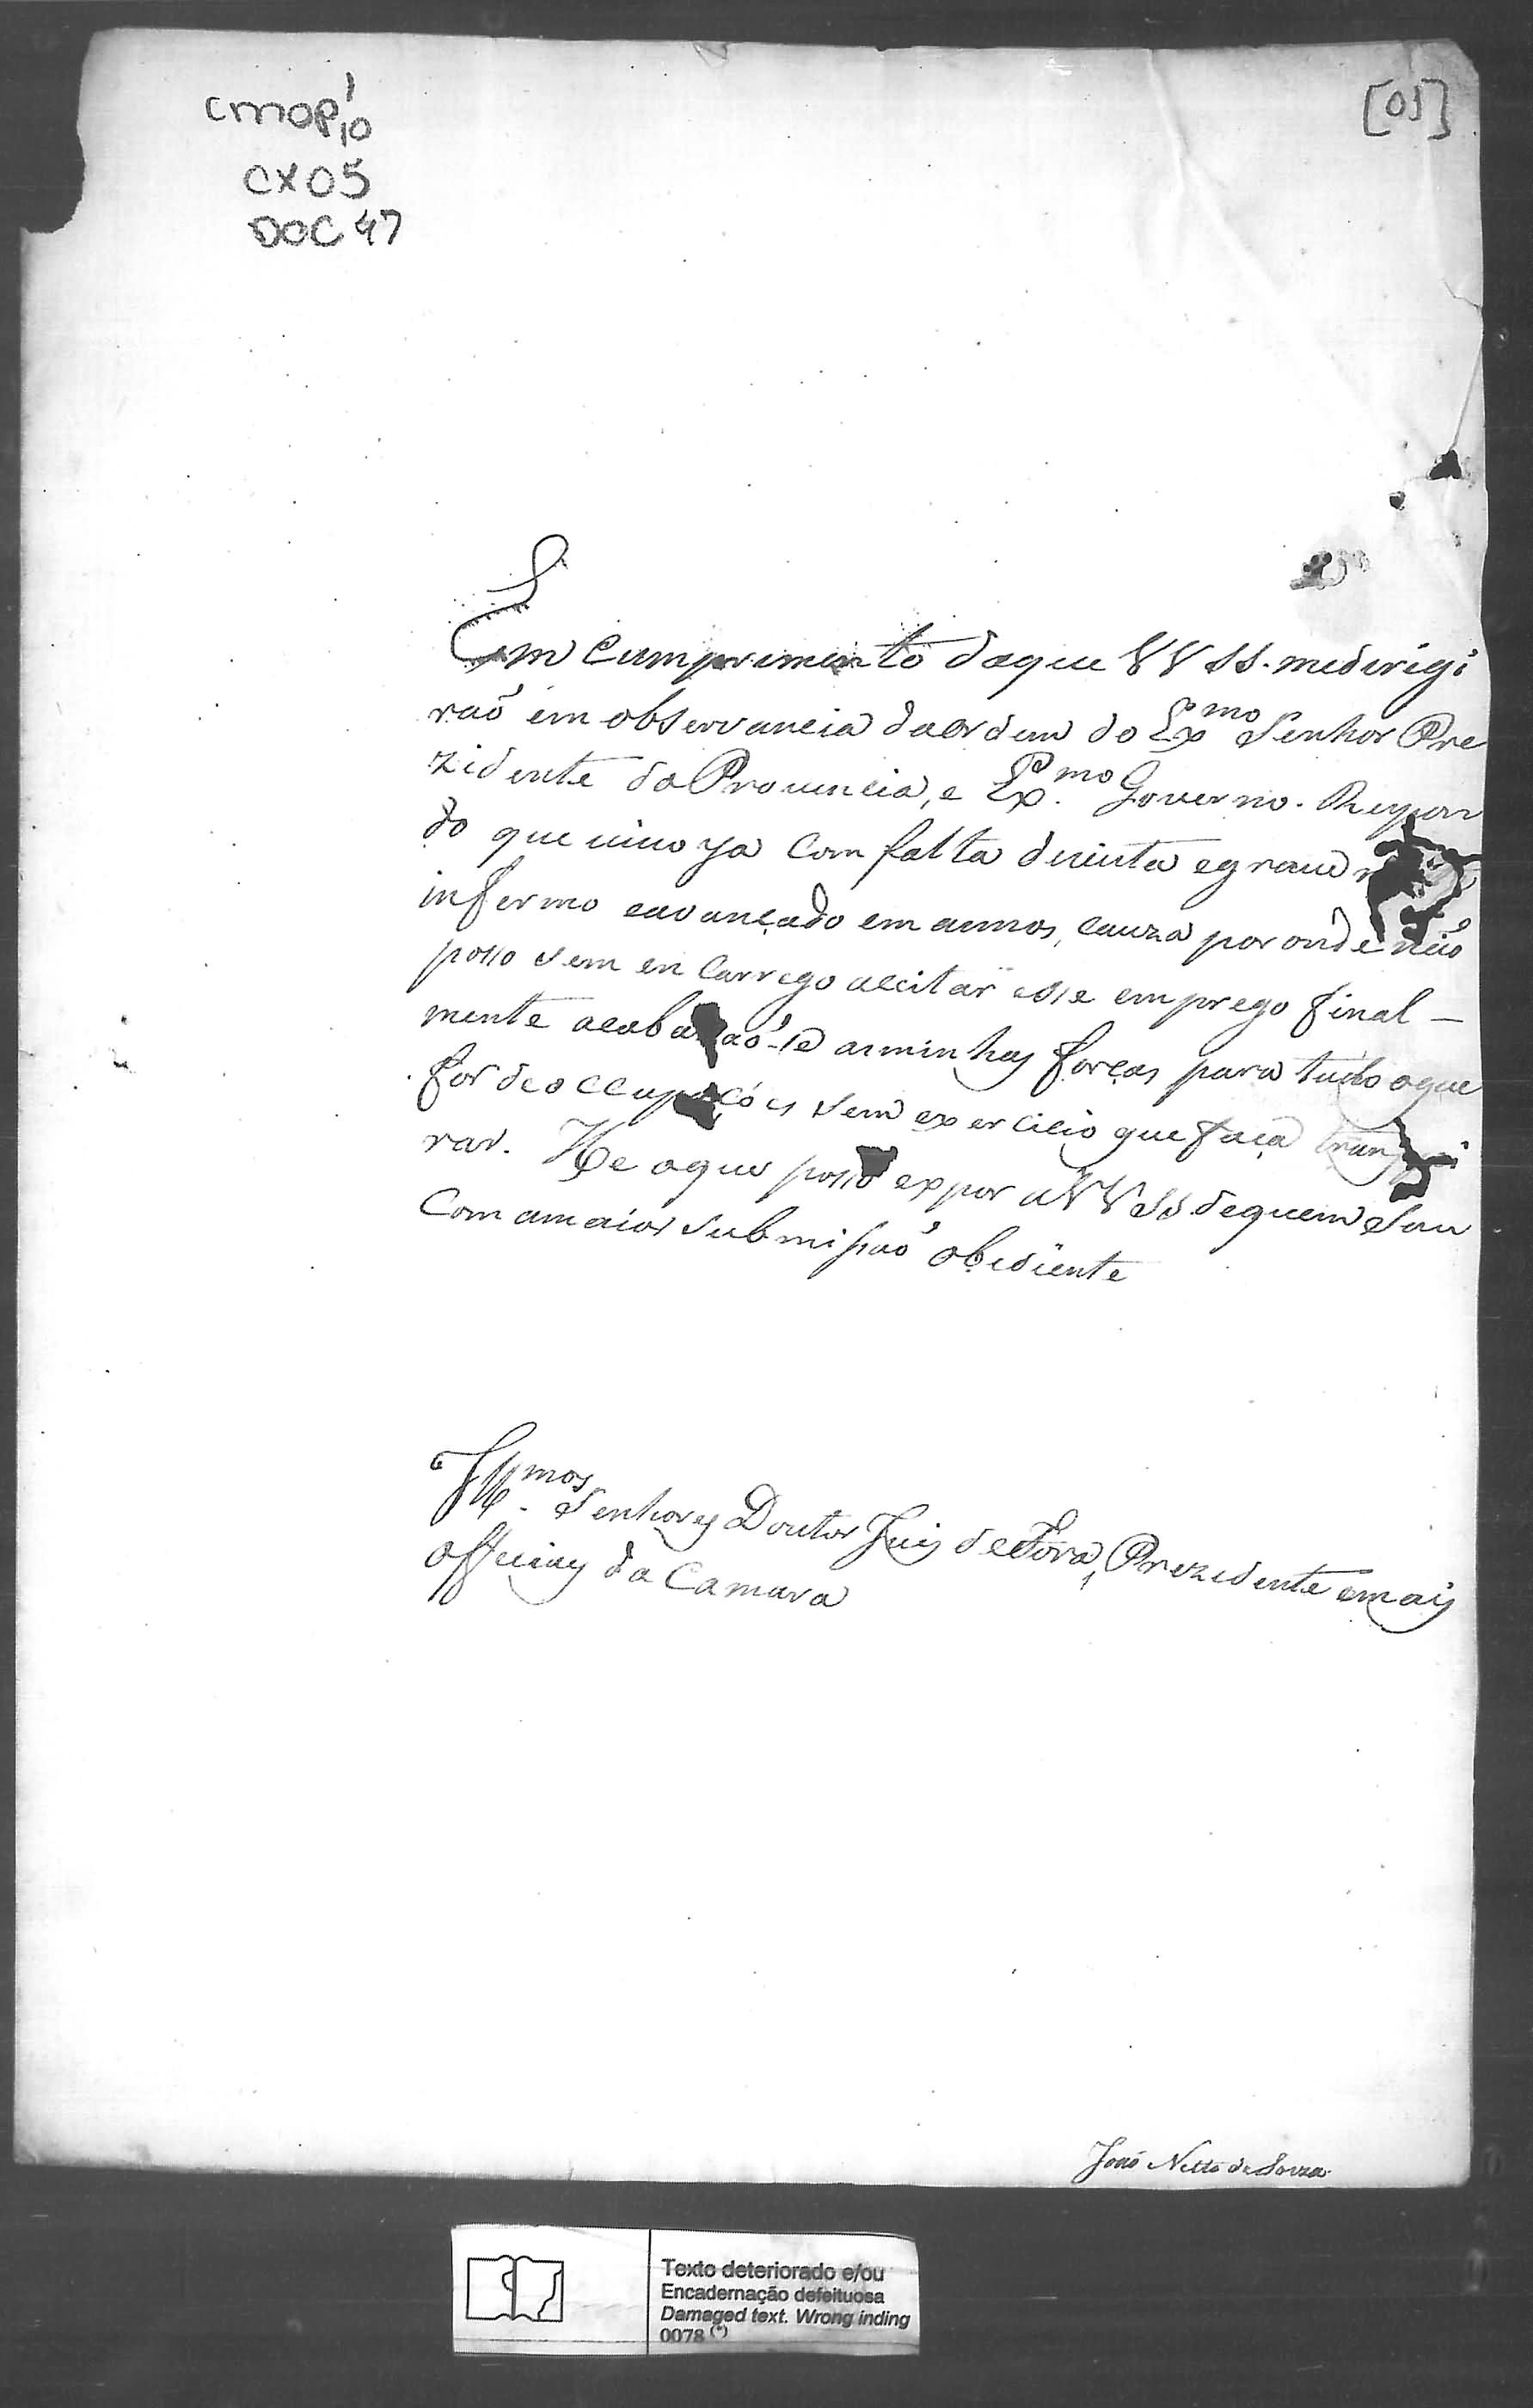 CMOP 1,10
CX05
DOC 47
[01]
Em Cumprimento daque VV SS. medirigi
raõ em observancia daordem do Exmo Senhor Pre
zidente da Provincia, e Exmo Governo. Respon
do que vivo ja Com falta devista egravem
infermo eavançado em annos, cauza por onde não
posso sem encarrego aceitar esse emprego final-
mente acaba aõ-se asminhas forças para tudo oque
for deoccupaçoẽs sem exercicio que faça transpi
rar. He oque posso expor aVV SS dequem Sou
Com amaior submissaõ obediente
Illmos Senhores Doutor Juis deFora, Prezidente emais
Officiaes da Camara
João Netto de Souza
Texto deteriorado e/ou
Encadernação defeituosa
Damaged text. Wrong inding
0078 (*)